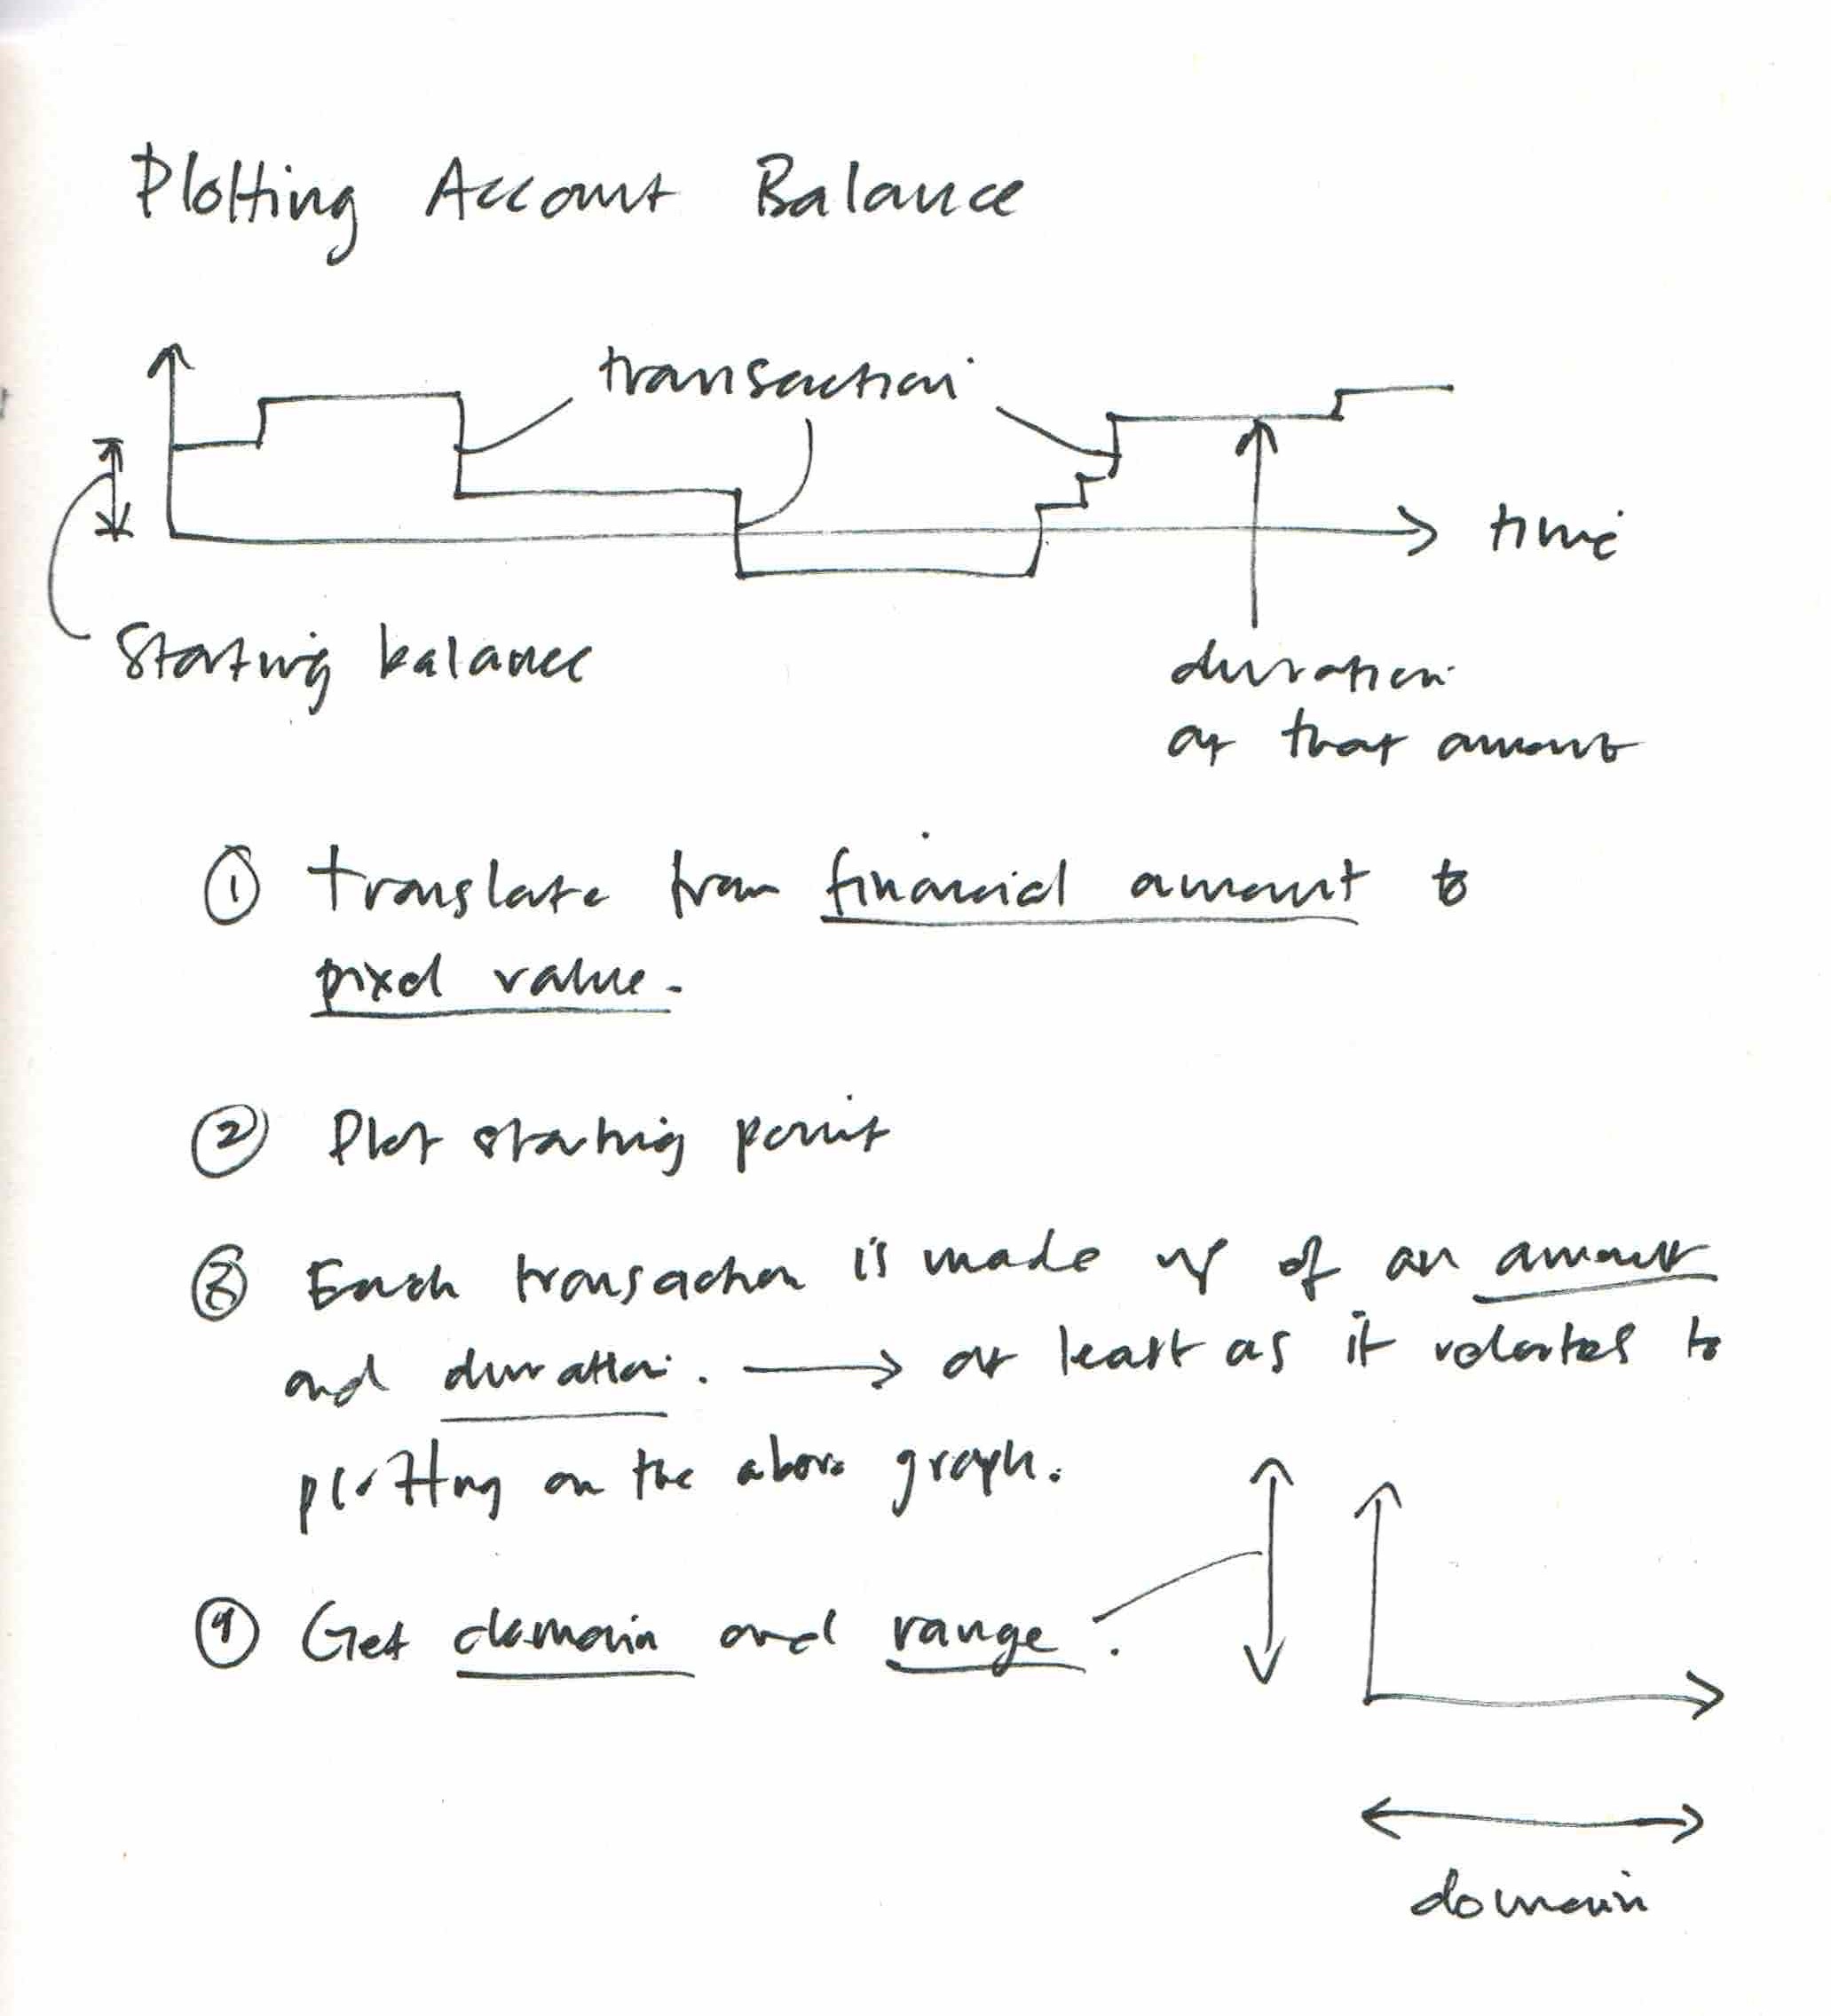 Plotting Account Balance
transaction
time
Starting balance
duration
at that amount
① Translate from financial amount to
pixel value.
② Plot starting point
③ Each transaction is made up of an amount
and duration. → at least as it relates to
plotting on the above graph.
④ Get domain and range.
domain